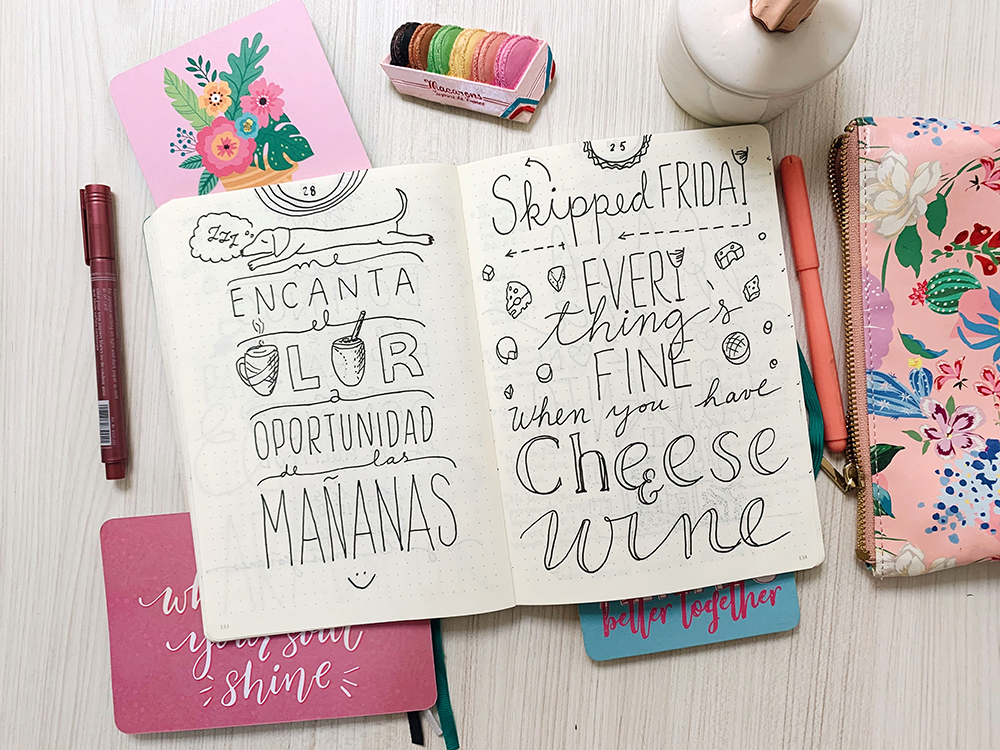 Macarons
28
ZZZ
me
ENCANTA
el
OLOR
a
OPORTUNIDAD
de las
MAÑANAS
133
25
Skipped FRIDAY
EVERY
thing's
FINE
when you have
Cheese
&
wine
134
your soul
shine
better together